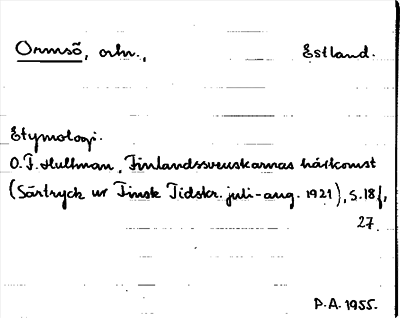 Ormsö, ortn., Estland.
Etymologi.
O.F. Hultman, Finlandssvenskarnas härkomst
(Särtryck ur Finsk Tidskr. juli-aug. 1921), S. 18 f,
27.
P.A. 1955.